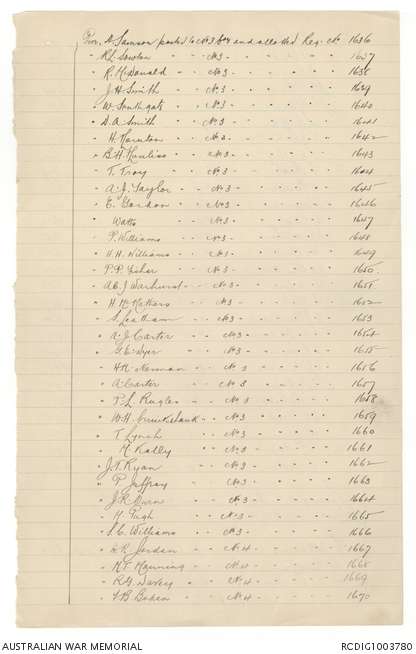 Pvr. A. Samson posted to No 3 Sqn and allotted Reg. No. 1636
" R.L. Sowter " " No 3 " " " " " 1637
" R. McDonald " " No 3 " " " " " 1638
" J.H. Smith " " No 3 " " " " " 1639
" W. Southgate " " No 3 " " " " " 1640
" D.A. Smith " " No 3 " " " " " 1641
" H. " " No 3 " " " " " 1642
" B.H. " " No 3 " " " " " 1643
" T. Troy " " No 3 " " " " " 1644
" A.J. Taylor " " No 3 " " " " " 1645
" E. Gordon " " No 3 " " " " " 1646
" Watts " " No 3 " " " " " 1647
" P. Williams " " No 3 " " " " " 1648
" H.H. Williams " " No 3 " " " " " 1649
" P.P. Fisher " " No 3 " " " " " 1650
" A.E.J. Warhurst " " No 3 " " " " " 1651
" H. " " No 3 " " " " " 1652
" S. Leatham " " No 3 " " " " " 1653
" A.J. Carter " " No 3 " " " " " 1654
" G.E. Dyer " " No 3 " " " " " 1655
" H.R. " " No 3 " " " " " 1656
" A. Carter " " No 3 " " " " " 1657
" P.L. Ruglen " " No 3 " " " " " 1658
" W.H. Cruickshank " No 3 " " " " " 1659
" T. Lynch " " No 3 " " " " " 1660
" M. Kelly " " No 3 " " " " " 1661
" J.T. Ryan " " No 3 " " " " " 1662
" P. Jeffrey " " No 3 " " " " " 1663
" J.R. " " No 3 " " " " " 1664
" H. Pugh " " No 3 " " " " " 1665
" L.C. Williams " " No 3 " " " " " 1666
" R.R. Jordan " " No 4 " " " " " 1667
" M.T. Manning " " No 4 " " " " " 1668
" R.G. Davey " " No 4 " " " " " 1669
" F.B. " " No 4 " " " " " 1670
AUSTRALIAN WAR MEMORIAL RCDIG1003780